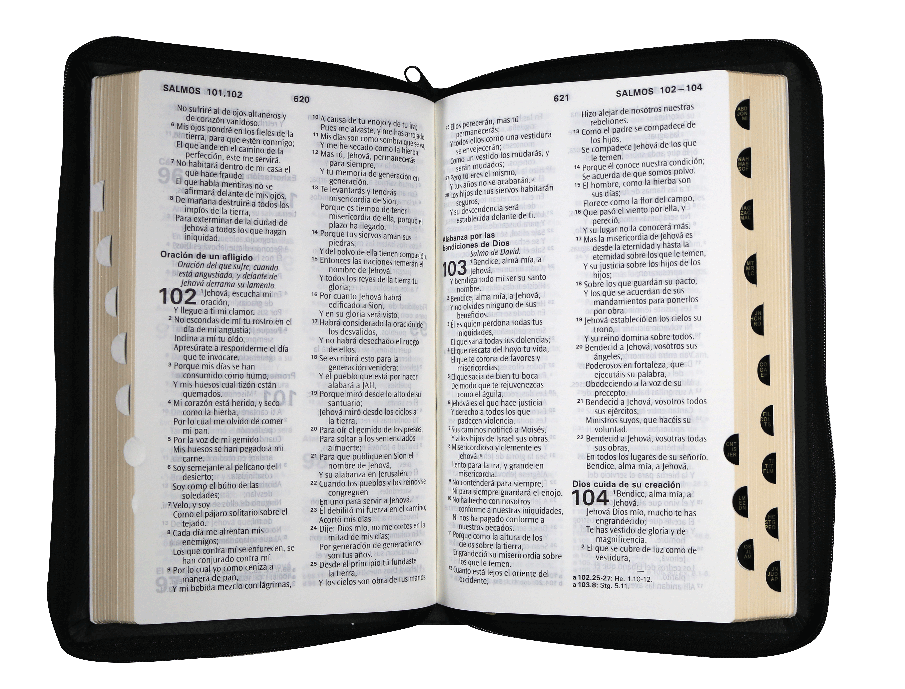 SALMOS 101.102
620
No sufriré al de ojos altaneros y
de corazón vanidoso.
6 Mis ojos pondré en los fieles de la
tierra, para que estén conmigo;
El que ande en el camino de la
perfección, éste me servirá.
7 No habitará dentro de mi casa el
que hace fraude;
El que habla mentiras no se
afirmará delante de mis ojos.
8 De mañana destruiré a todos los
impíos de la tierra,
Para exterminar de la ciudad de
Jehová a todos los que hagan
iniquidad.
Oración de un afligido
Oración del que sufre, cuando
está angustiado, y delante de
Jehová derrama su lamento
102 1 Jehová, escucha mi
oración,
Y llegue a ti mi clamor.
2 No escondas de mí tu rostro en el
día de mi angustia;
Inclina a mí tu oído;
Apresúrate a responderme el día
que te invocare.
3 Porque mis días se han
consumido como humo,
Y mis huesos cual tizón están
quemados.
4 Mi corazón está herido, y seco
como la hierba,
Por lo cual me olvido de comer
mi pan.
5 Por la voz de mi gemido
Mis huesos se han pegado a mi
carne.
6 Soy semejante al pelícano del
desierto;
Soy como el búho de las
soledades;
7 Velo, y soy
Como el pájaro solitario sobre el
tejado.
8 Cada día me afrentan mis
enemigos;
Los que contra mí se enfurecen, se
han conjurado contra mí.
9 Por lo cual yo como ceniza a
manera de pan,
Y mi bebida mezclo con lágrimas,
10 A causa de tu enojo y de tu ira;
Pues me alzaste, y me has arrojado.
11 Mis días son como sombra que se va,
Y me he secado como la hierba.
12 Mas tú, Jehová, permanecerás
para siempre,
Y tu memoria de generación en
generación.
13 Te levantarás y tendrás
misericordia de Sion,
Porque es tiempo de tener
misericordia de ella, porque el
plazo ha llegado.
14 Porque tus siervos aman sus
piedras,
Y del polvo de ella tienen compasión.
15 Entonces las naciones temerán el
nombre de Jehová,
Y todos los reyes de la tierra tu
gloria;
16 Por cuanto Jehová habrá
edificado a Sion,
Y en su gloria será visto,
17 Habrá considerado la oración de
los desvalidos,
Y no habrá desechado el ruego
de ellos.
18 Se escribirá esto para la
generación venidera;
Y el pueblo que está por nacer
alabará a JAH,
19 Porque miró desde lo alto de su
santuario;
Jehová miró desde los cielos a
la tierra,
20 Para oír el gemido de los presos,
Para soltar a los sentenciados
a muerte;
21 Para que publique en Sion el
nombre de Jehová,
Y su alabanza en Jerusalén,
22 Cuando los pueblos y los reinos se
congreguen
En uno para servir a Jehová.
23 Él debilitó mi fuerza en el camino;
Acortó mis días.
24 Dije: Dios mío, no me cortes en la
mitad de mis días;
Por generación de generaciones
son tus años.
25 Desde el principio tú fundaste
la tierra,
Y los cielos son obra de tus manos.
621
SALMOS 102–104
Ellos perecerán, mas tú
permanecerás;
Y todos ellos como una vestidura
se envejecerán;
Como un vestido los mudarás, y
serán mudados;
Pero tú eres el mismo,
Y tus años no se acabarán.
Los hijos de tus siervos habitarán
seguros,
Y su descendencia será
establecida delante de ti.
Alabanza por las
bendiciones de Dios
Salmo de David.
103 1 Bendice, alma mía, a
Jehová,
Y bendiga todo mi ser su santo
nombre.
2 Bendice, alma mía, a Jehová,
Y no olvides ninguno de sus
beneficios.
Él es quien perdona todas tus
iniquidades,
El que sana todas tus dolencias;
El que rescata del hoyo tu vida,
El que te corona de favores y
misericordias;
El que sacia de bien tu boca
De modo que te rejuvenezcas
como el águila.
Jehová es el que hace justicia
Y derecho a todos los que
padecen violencia.
Sus caminos notificó a Moisés,
Y a los hijos de Israel sus obras.
Misericordioso y clemente es
Jehová;
Lento para la ira, y grande en
misericordia.
No contenderá para siempre,
Ni para siempre guardará el enojo.
No ha hecho con nosotros
conforme a nuestras iniquidades,
Ni nos ha pagado conforme a
nuestros pecados.
Porque como la altura de los
cielos sobre la tierra,
Engrandeció su misericordia sobre
los que le temen.
Cuanto está lejos el oriente del
occidente,
Hizo alejar de nosotros nuestras
rebeliones.
13 Como el padre se compadece de
los hijos,
Se compadece Jehová de los que
le temen.
14 Porque él conoce nuestra condición;
Se acuerda de que somos polvo.
15 El hombre, como la hierba son
sus días;
Florece como la flor del campo,
16 Que pasó el viento por ella, y
pereció,
Y su lugar no la conocerá más.
17 Mas la misericordia de Jehová es
desde la eternidad y hasta la
eternidad sobre los que le temen,
Y su justicia sobre los hijos de los
hijos;
18 Sobre los que guardan su pacto,
Y los que se acuerdan de sus
mandamientos para ponerlos
por obra.
19 Jehová estableció en los cielos su
trono,
Y su reino domina sobre todos.
20 Bendecid a Jehová, vosotros sus
ángeles,
Poderosos en fortaleza, que
ejecutáis su palabra,
Obedeciendo a la voz de su
precepto.
21 Bendecid a Jehová, vosotros todos
sus ejércitos,
Ministros suyos, que hacéis su
voluntad.
22 Bendecid a Jehová, vosotras todas
sus obras,
En todos los lugares de su señorío.
Bendice, alma mía, a Jehová.
Dios cuida de su creación
104 1 Bendice, alma mía, a
Jehová.
Jehová Dios mío, mucho te has
engrandecido;
Te has vestido de gloria y de
magnificencia.
2 El que se cubre de luz como de
vestidura,
a 102.25-27: He. 1.10-12.
a 103.8: Stg. 5.11.